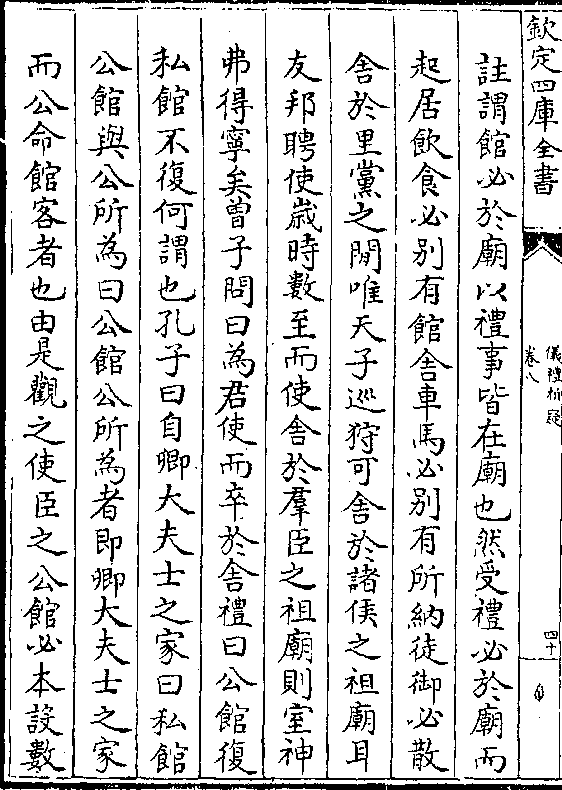 欽定四庫全書
儀禮析疑
卷八
四十
註謂館必於廟以禮事皆在廟也然受禮必於廟而
起居飲食必别有館舍車馬必别有所納徒御必散
舍於里黨之閒唯天子巡狩可舍於諸侯之祖廟耳
友邦聘使歲時數至而使舍於羣臣之祖廟則室神
弗得寧矣曽子問曰為君使而卒於舍禮曰公館復
私館不復何謂也孔子曰自卿大夫士之家曰私館
公館與公所為曰公館公所為者即卿大夫士之家
而公命館客者也由是觀之使臣之公館必本設數